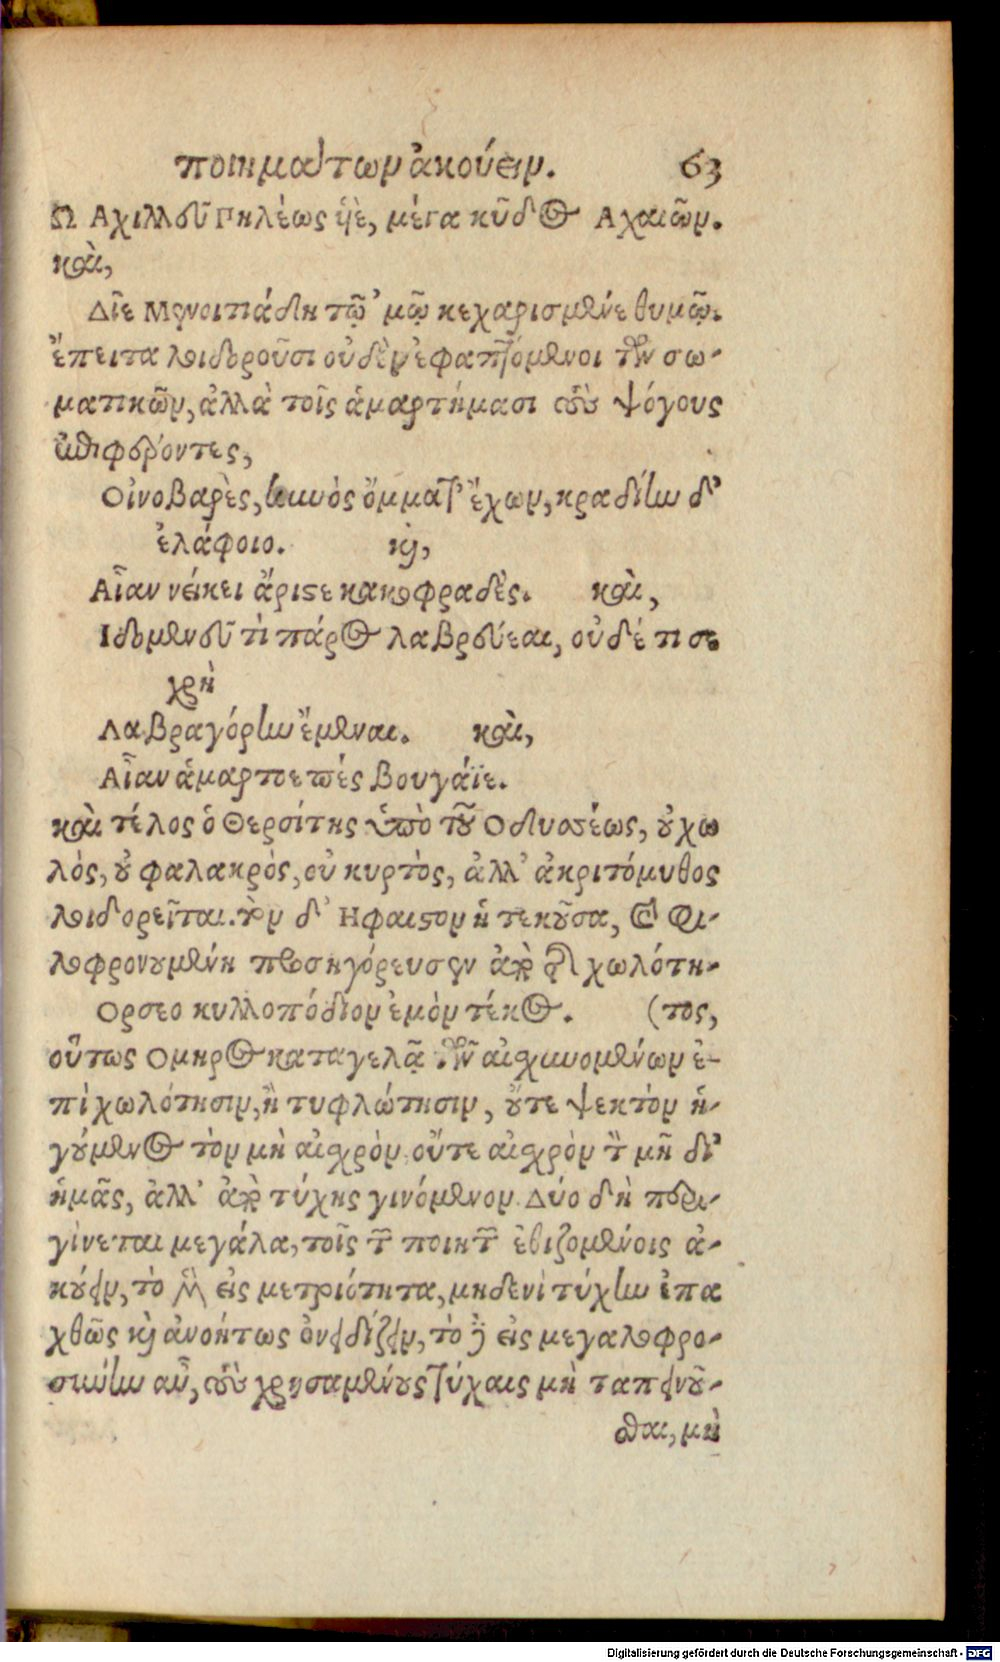 ποιημάτων ἀκούειν. 63
Ω Αχιλλεῦ Πηλέως ὑὲ, μέγα κῦδος Αχαιῶν.
καὶ,
Δῖε Μενοιτιάδη τῷ 'μῷ κεχαρισμένε θυμῷ.
ἔπειτα λοιδοροῦσι οὐδὲν ἐφαπτόμενοι τῶν σω-
ματικῶν, ἀλλὰ τοῖς ἁμαρτήμασι τοὺς ψόγους
ἐπιφέροντες,
Οἰνοβαρὲς, κυνὸς ὄμματ' ἔχων, κραδίην δ'
ἐλάφοιο. καὶ,
Αἶαν νείκει ἄριστε κακοφραδὲς. καὶ,
Ιδομενεῦ τὶ πάρος λαβρεύεαι, οὐδέ τι σε
χρὴ
Λαβραγόρην ἔμεναι. καὶ,
Αἶαν ἁμαρτοεπές βουγάϊε.
καὶ τέλος ὁ Θερσίτης ὑπὸ τοῦ Οδυσσέως, οὐ χω
λὸς, οὐ φαλακρὸς, οὐ κυρτὸς, ἀλλ' ἀκριτόμυθος
λοιδορεῖται. τὸν δ' Ηφαιστον ἡ τεκοῦσα, καὶ φι-
λοφρονουμένη προσηγόρευσεν ἀπὸ τῆς χωλότη-
Ορσεο κυλλοπόδιον ἐμὸν τέκος. (τος,
οὕτως Ομηρος καταγελᾷ τῶν αἰσχυνομένων ἐ-
πὶ χωλότησιν, ἢ τυφλώτησιν, οὔτε ψεκτὸν ἡ-
γούμενος τὸν μὴ αἰσχρὸν, οὔτε αἰσχρὸν τὸ μὴ δι'
ἡμᾶς, ἀλλ' ἀπὸ τύχης γινόμενον. Δύο δὴ περι-
γίνεται μεγάλα, τοῖς τῶν ποιητῶν ἐθιζομένοις ἀ-
κούειν, τὸ μὲν εἰς μετριότητα, μηδενὶ τύχην ἐπα
χθῶς καὶ ἀνοήτως ὀνειδίζειν, τὸ δὲ εἰς μεγαλοφρο-
σύνην αὖ, τοὺς χρησαμένους τύχαις μὴ ταπεινοῦ-
σθαι, μὴ
Digitalisierung gefördert durch die Deutsche Forschungsgemeinschaft - DFG